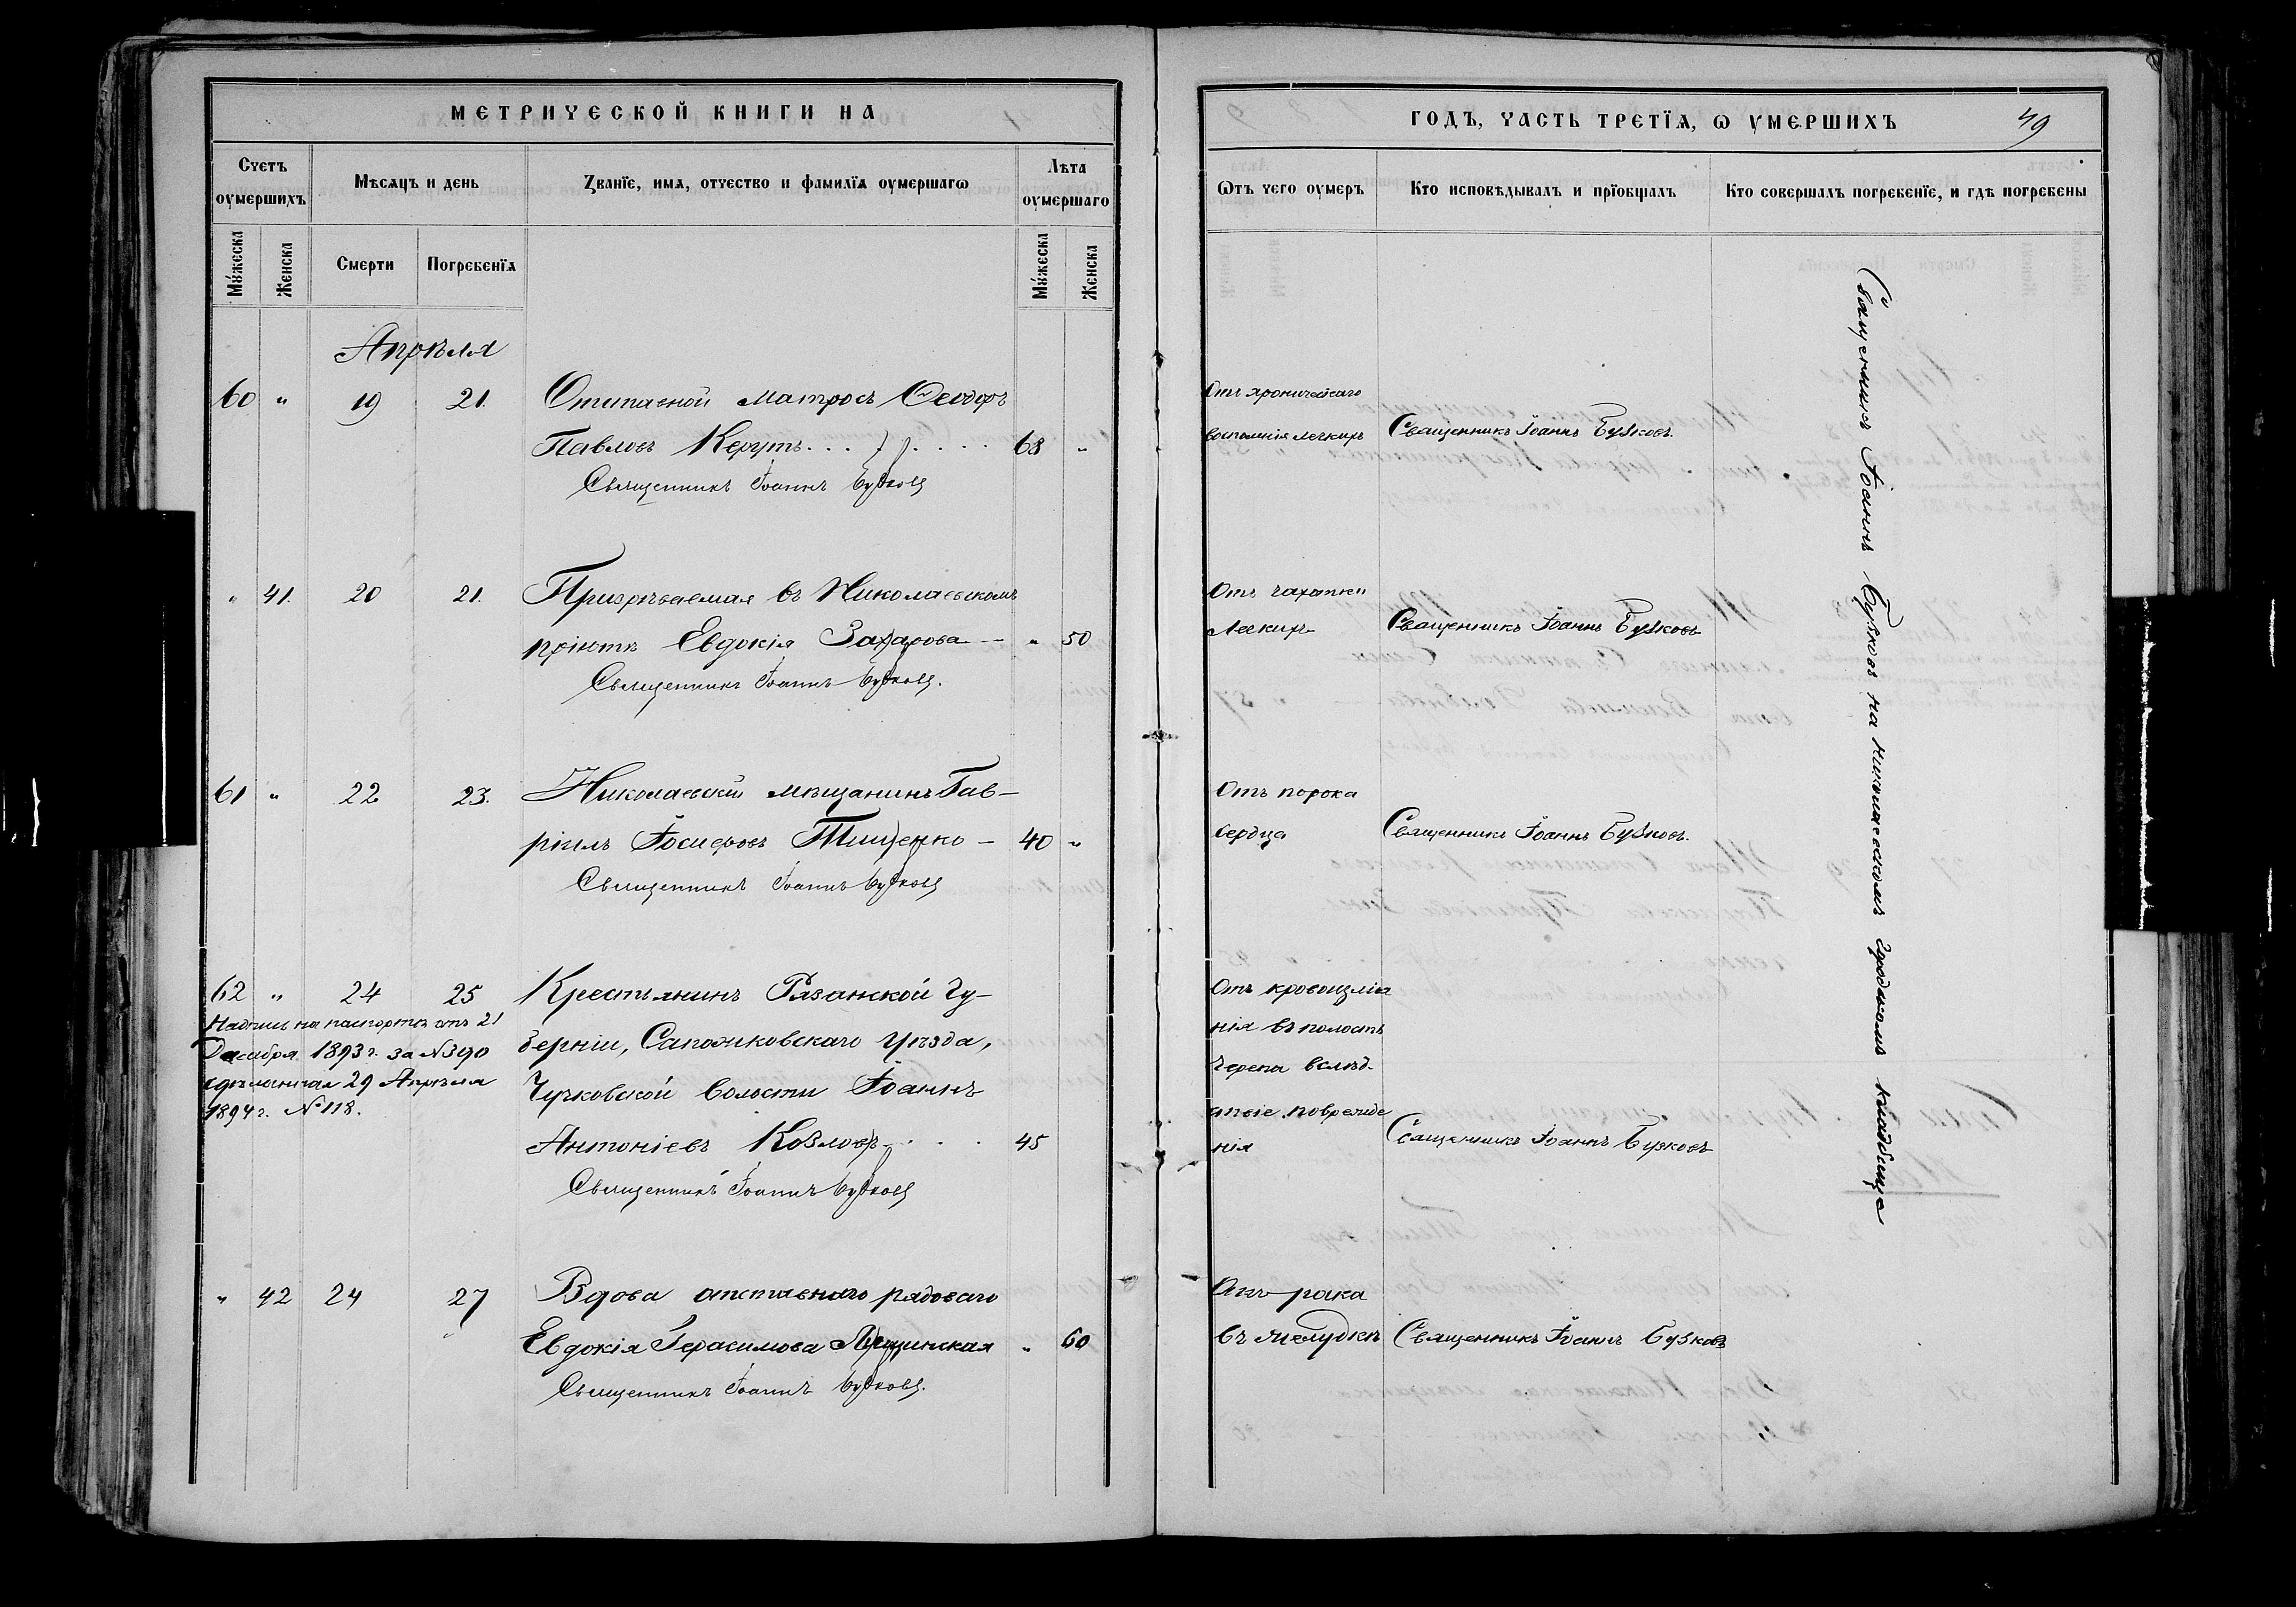 МЕТРИЧЕСКОЙ КНИГИ НА
Счетъ оумершихъ
Мѣсяцъ и день
Званїе, имя, отчество и фамилїя оумершагѡ
Лѣта оумершаго
Мꙋжеска
Женска
Смерти
Погребенїя
Мꙋжеска
Женска
Апрѣля
60 " 19 21. Отставной матросъ Ѳеодоръ
Павловъ Керутъ . . . . . . 68 "
Священникъ Іоаннъ Бузковъ
" 41. 20 21. Призрѣваемая въ Николаевскомъ
пріютѣ Евдокія Захарова — " 50
Священникъ Іоаннъ Бузковъ.
61 " 22 23. Николаевскій мѣщанинъ Гав-
ріилъ Іосифовъ Тищенко — 40 "
Священникъ Іоаннъ Бузковъ
62 " 24 25 Крестьянинъ Рязанской Гу-
берніи, Сапожковскаго уѣзда,
Чучковской волости Іоаннъ
Антоніевъ Козловъ . . . 45
Священникъ Іоаннъ Бузковъ
Надпись на паспортѣ отъ 21
Декабря 1893 г. за №390
сдѣланная 29 Апрѣля
1894 г. №118.
" 42 24 27 Вдова отставнаго рядоваго
Евдокія Герасимова Лещинская " 60
Священникъ Іоаннъ Бузковъ.
ГОДЪ, ЧАСТЬ ТРЕТЇЯ, Ѡ УМЕРШИХЪ 49
Ѿтъ чего оумеръ
Кто исповѣдывалъ и прїобщалъ
Кто совершалъ погребенїе, и гдѣ погребены
Отъ хроническаго
воспаленія легкихъ Священникъ Іоаннъ Бузковъ.
Отъ чахотки
легкихъ Священникъ Іоаннъ Бузковъ
Отъ порока
сердца Священникъ Іоаннъ Бузковъ.
Отъ кровоизлія
нія въ полость
черепа вслѣд-
ствіе поврежде
нія Священникъ Іоаннъ Бузковъ
Отъ рака
въ желудкѣ Священникъ Іоаннъ Бузковъ
Священникъ Іоаннъ Бузковъ на николаевскомъ городскомъ кладбищѣ